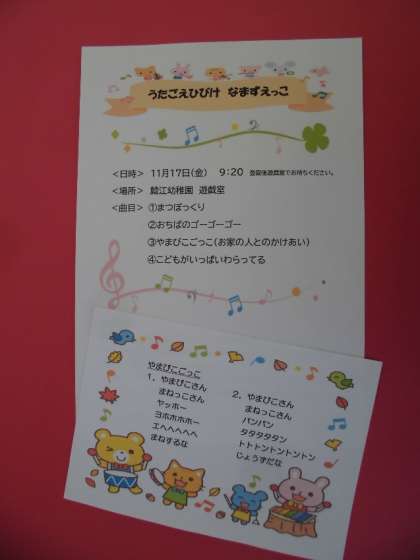 うたごえひびけ なまずえっこ
<日時> 11月17日(金) 9:20 登園後遊戯室でお待ちください。
<場所> 鯰江幼稚園 遊戯室
<曲目> ①まつぼっくり
②おちばのゴーゴーゴー
③やまびこごっこ(お家の人とのかけあい)
④こどもがいっぱいわらってる
やまびこごっこ
1. やまびこさん
まねっこさん
ヤッホー
ヨホホホホー
エヘヘヘヘヘ
まねするな
2. やまびこさん
まねっこさん
パンパン
タタタタタン
トトトントントントン
じょうずだな